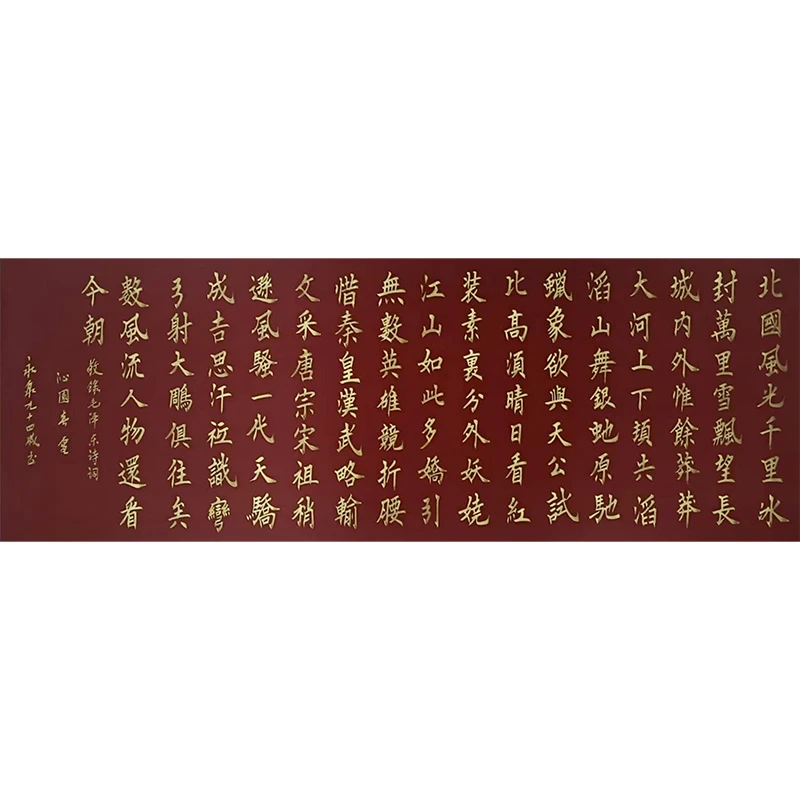 北國風光千里冰
封萬里雪飄望長
城內外惟餘莽莽
大河上下頓失滔
滔山舞銀虵原馳
蠟象欲與天公試
比高湏晴日看紅
裝素裹分外妖嬈
江山如此多嬌引
無數英雄競折腰
惜秦皇漢武略輸
文采唐宗宋祖稍
遜風騷一代天驕
成吉思汗祗識彎
弓射大鵰俱往矣
數風流人物還看
今朝
敬錄毛泽东詩詞
沁園春雪
永泉九十四歲书